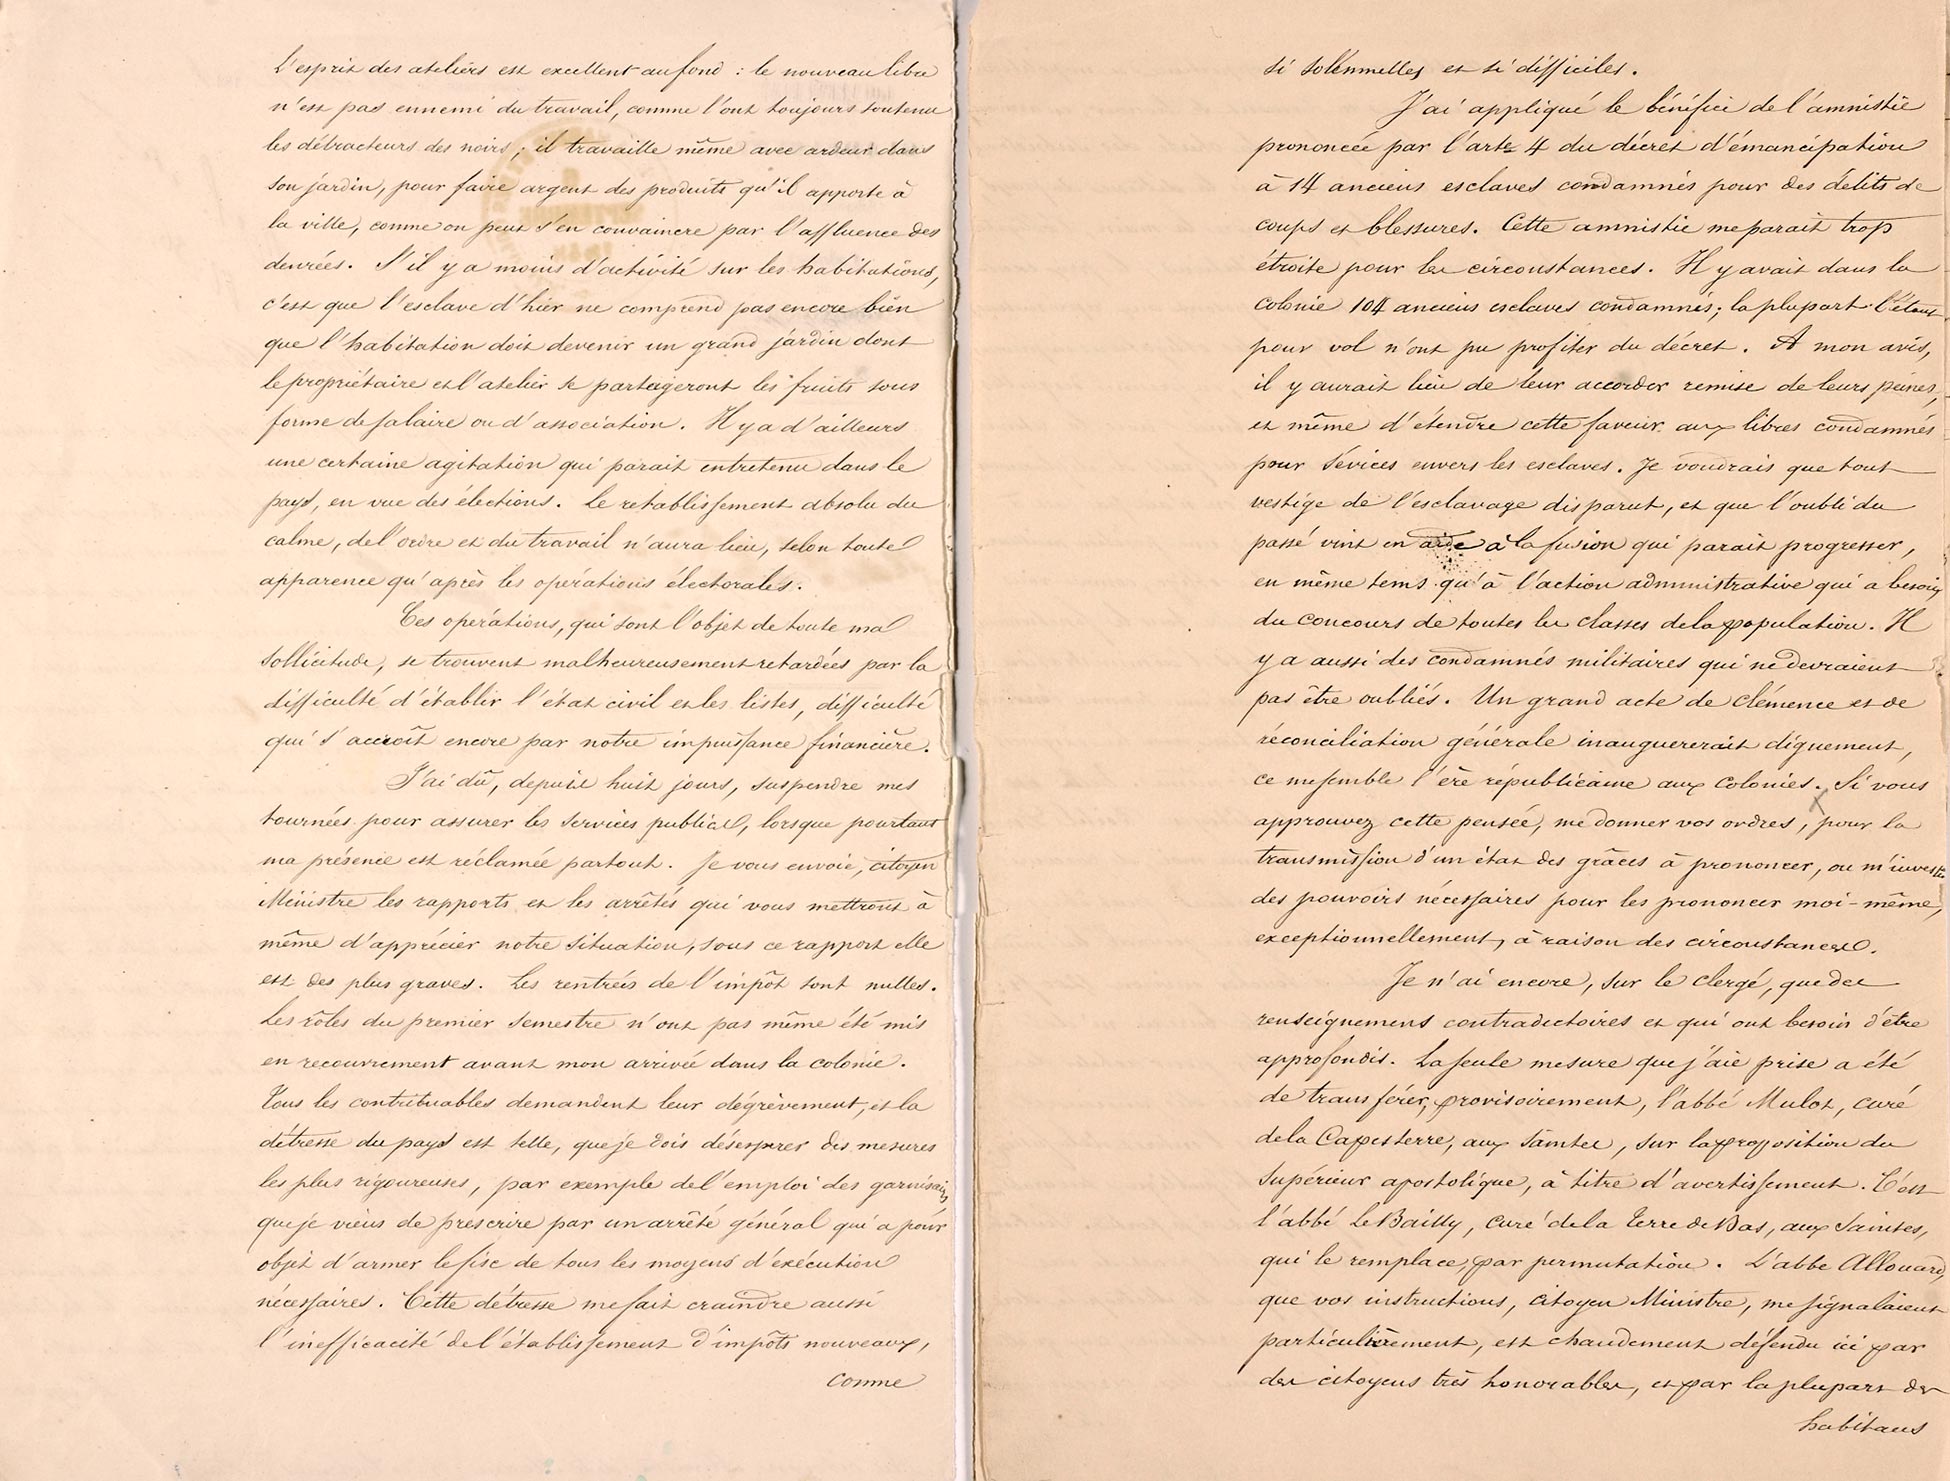 L'esprit des ateliers est excellent au fond : le nouveau libre
n'est pas ennemi du travail, comme l'ont toujours soutenu
les détracteurs des noirs ; il travaille même avec ardeur dans
son jardin, pour faire argent des produits qu'il apporte à
la ville, comme on peut s'en convaincre par l'affluence des
denrées. S'il y a moins d'activité sur les habitations,
c'est que l'esclave d'hier ne comprend pas encore bien
que l'habitation doit devenir un grand jardin dont
le propriétaire et l'atelier se partageront les fruits sous
forme de salaire ou d'association. Il y a d'ailleurs
une certaine agitation qui parait entretenu dans le
pays, en vue des élections. Le retablissement absolu du
calme, de l'ordre et du travail n'aura lieu, selon toute
apparence qu'après les opérations électorales.
Ces opérations, qui sont l'objet de toute ma
sollicitude, se trouvent malheureusement retardées par la
difficulté d'établir l'état civil et les listes, difficulté
qui s'accroît encore par notre impuissance financière.
J'ai dû, depuis huit jours, suspendre mes
tournées pour assurer les services publics, lorsque pourtant
ma présence est réclamée partout. Je vous envoie, citoyen
Ministre les rapports et les arrêtés qui vous mettront à
même d'apprécier notre situation, sous ce rapport elle
est des plus graves. Les rentrées de l'impôt sont nulles.
Les rôles du premier semestre n'ont pas même été mis
en recouvrement avant mon arrivée dans la colonie.
Tous les contribuables demandent leur dégrèvement, et la
détresse du pays est telle, que je dois désespérer des mesures
les plus rigoureuses, par exemple de l'emploi des garnisaires
que je viens de prescrire par un arrêté général qui a pour
objet d'armer le fisc de tous les moyens d'exécution
nécessaires. Cette détresse me fait craindre aussi
l'inefficacité de l'établissement d'impôts nouveaux,
comme
si solennelles et si difficiles.
J'ai appliqué le bénéfice de l'amnistie
prononcée par l'arte 4 du décret d'émancipation
à 14 anciens esclaves condamnés pour des délits de
coups et blessures. Cette amnistie me parait trop
étroite pour les circonstances. Il y avait dans la
colonie 104 anciens esclaves condamnés ; la plupart l'étant
pour vol n'ont pu profiter du décret. A mon avis,
il y aurait lieu de leur accorder remise de leurs peines,
et même d'étendre cette faveur aux libres condamnés
pour sévices envers les esclaves. Je voudrais que tout
vestige de l'esclavage disparut, et que l'oubli du
passé vint en aide à la fusion qui parait progresser,
en même tems qu'à l'action administrative qui a besoin
du concours de toutes les classes de la population. Il
y a aussi des condamnés militaires qui ne devraient
pas être oubliés. Un grand acte de clémence et de
réconciliation générale inaugurerait dignement,
ce me semble l'ère républicaine aux colonies. Si vous
approuvez cette pensée, me donner vos ordres, pour la
transmission d'un état des grâces à prononcer, ou m'investir
des pouvoirs nécessaires pour les prononcer moi-même,
exceptionnellement, à raison des circonstances.
Je n'ai encore, sur le clergé, que des
renseignemens contradictoires et qui ont besoin d'être
approfondis. La seule mesure que j'aie prise a été
de transférer, provisoirement, l'abbé Mulot, curé
de la Capesterre, aux Saintes, sur la proposition du
supérieur apostolique, à titre d'avertissement. C'est
l'abbé Le Bailly, curé de la Terre de Bas, aux Saintes,
qui le remplace, par permutation. L'abbé Allouard,
que vos instructions, citoyen Ministre, me signalaient
particulièrement, est chaudement défendu ici par
des citoyens très honorables, et par la plupart des
habitans